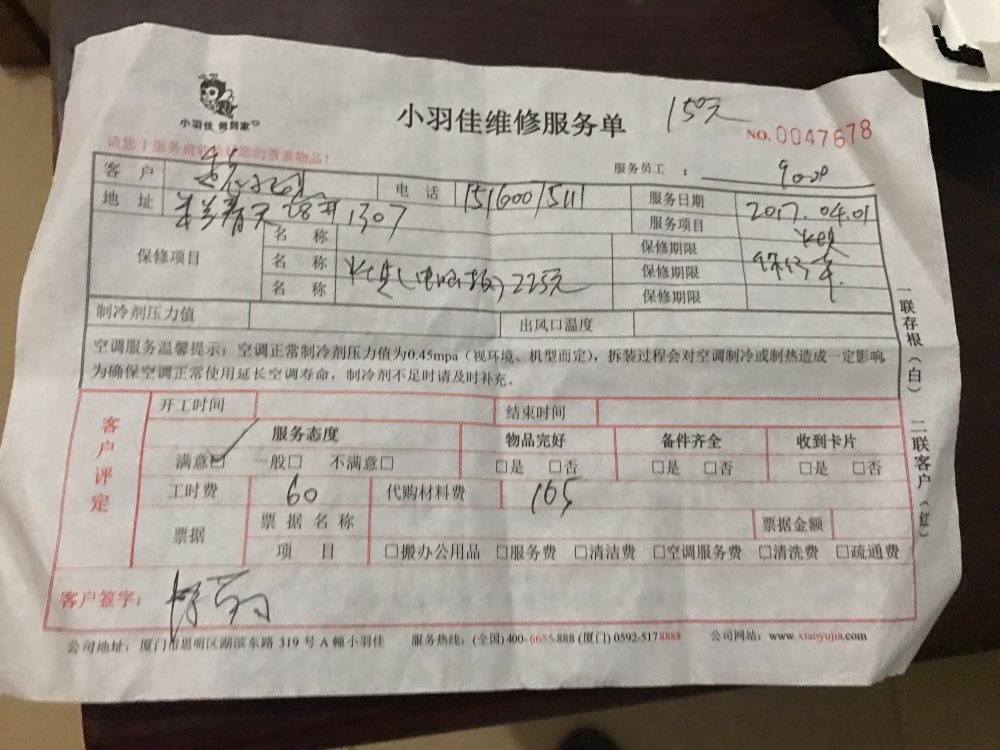 小羽佳 做到家
小羽佳维修服务单
150元
NO. 0047678
服务员工：
客户
电话 15160015111
服务日期 2017.04.01
地址 1307
服务项目
保修项目
名称
保修期限
名称 225元
保修期限
名称
保修期限
制冷剂压力值 出风口温度
空调服务温馨提示：空调正常制冷剂压力值为0.45mpa（视环境、机型而定），拆装过程会对空调制冷或制热造成一定影响，
为确保空调正常使用延长空调寿命，制冷剂不足时请及时补充。
客户评定
开工时间 结束时间
服务态度 物品完好 备件齐全 收到卡片
满意□ 一般□ 不满意□ □是 □否 □是 □否 □是 □否
工时费 60 代购材料费 165
票据
票据名称 票据金额
项目 □搬办公用品 □服务费 □清洁费 □空调服务费 □清洗费 □疏通费
客户签字：
公司地址：厦门市思明区湖滨东路 319 号 A 幢小羽佳 服务热线：(全国)400-6655-888 (厦门) 0592-5178888 公司网站：www.xiaoyujia.com
一联存根（白） 二联客户（红）